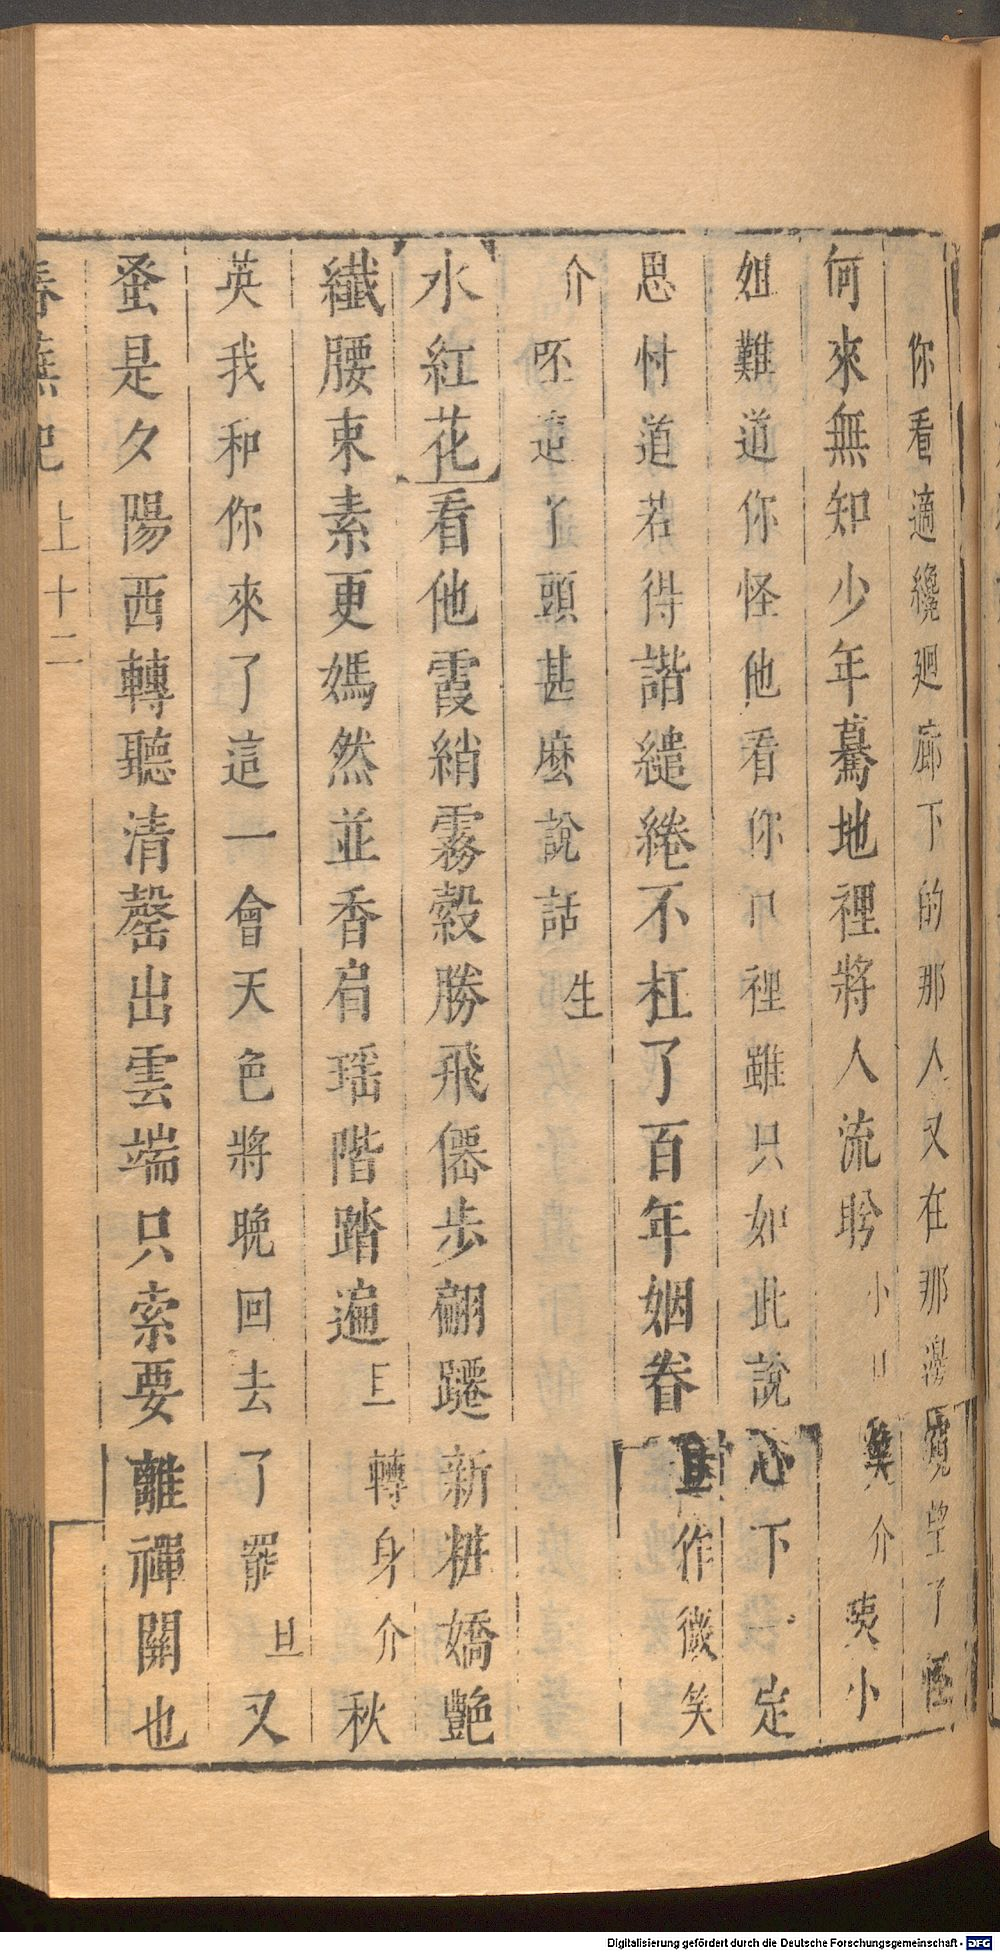 你看適纔廻廊下的那人又在那邊窺望了怪
何來無知少年驀地裡將人流盻小介小
姐難道你怪他看你口裡雖只如此說心下一定
思忖道若得諧繾綣不枉了百年姻眷旦作微笑
介呸這了頭甚麼說話生
水紅花看他霞綃霧縠勝飛僊步翩躚新粧嬌艷
纖腰束素更嫣然並香肩瑶階踏遍旦轉身介秋
英我和你來了這一會天色將晚回去了罷旦又
蚤是夕陽西轉聽清罄出雲端只索要離禪關也
春蕪記 上 十二
Digitalisierung gefördert durch die Deutsche Forschungsgemeinschaft - DFG